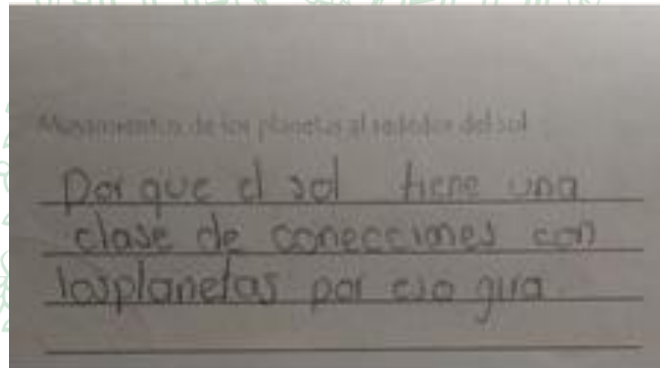 Movimientos de los planetas al rededor del sol
Por que el sol tiene una
clase de conecciones con
losplanetas por eso gira